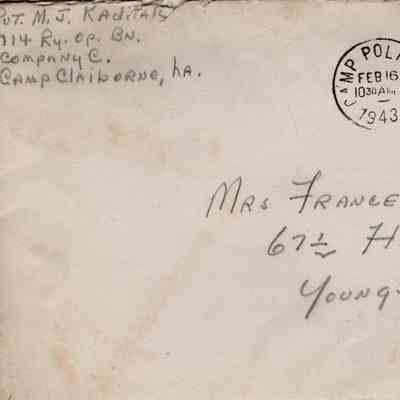 PVT. M. J. Kaditals
714 Ry. Op. Bn.
Company C.
Camp Claiborne, La.
CAMP POL
FEB 16
1030 AM
1943
Mrs France
67½ H
Young